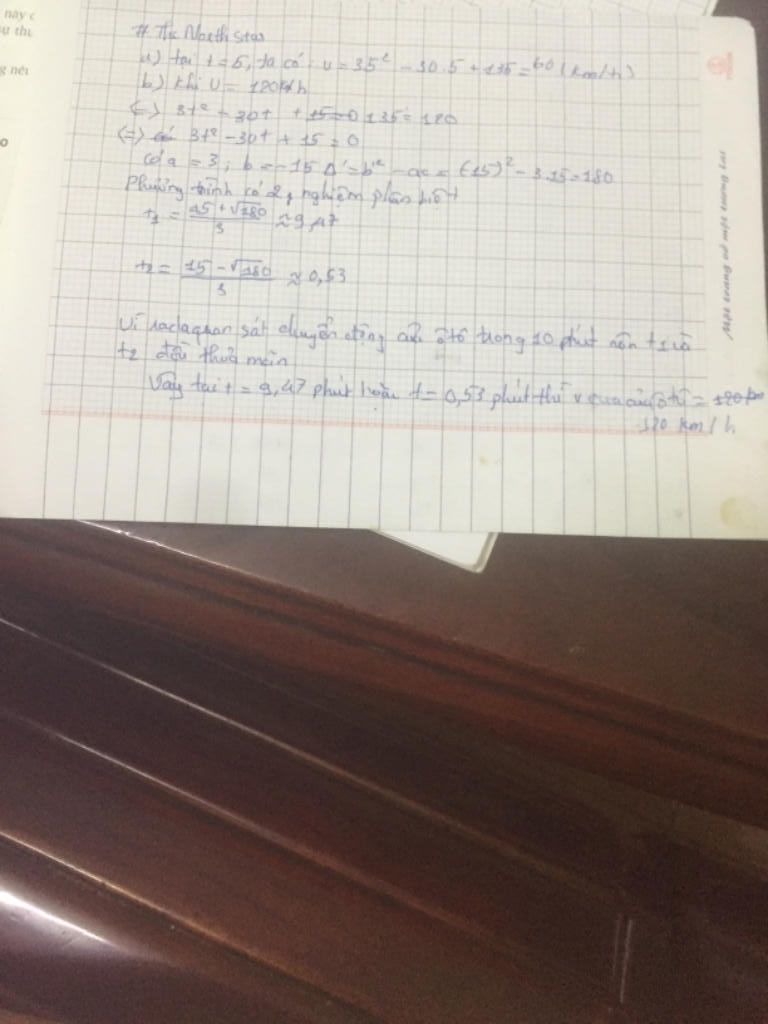 này c
# The North Star
a) tại t = 5, ta có: v = 3.5² - 30.5 + 135 = 60 (km/h)
b) khi v = 120km/h
(=) 3t² - 30t + 135 = 120
(=) 3t² - 30t + 15 = 0
Có a = 3; b' = -15 Δ' = b'² - ac = (15)² - 3.15 = 180
Phương trình có 2 nghiệm phân biệt
t1 = (15 + √180)/3 ≈ 9,47
t2 = (15 - √180)/3 ≈ 0,53
Vì rada quan sát chuyển động của ôtô trong 10 phút nên t1 và
t2 đều thoả mãn
Vậy tại t = 9,47 phút hoặc t = 0,53 phút thì v của ôtô =
120 km/h